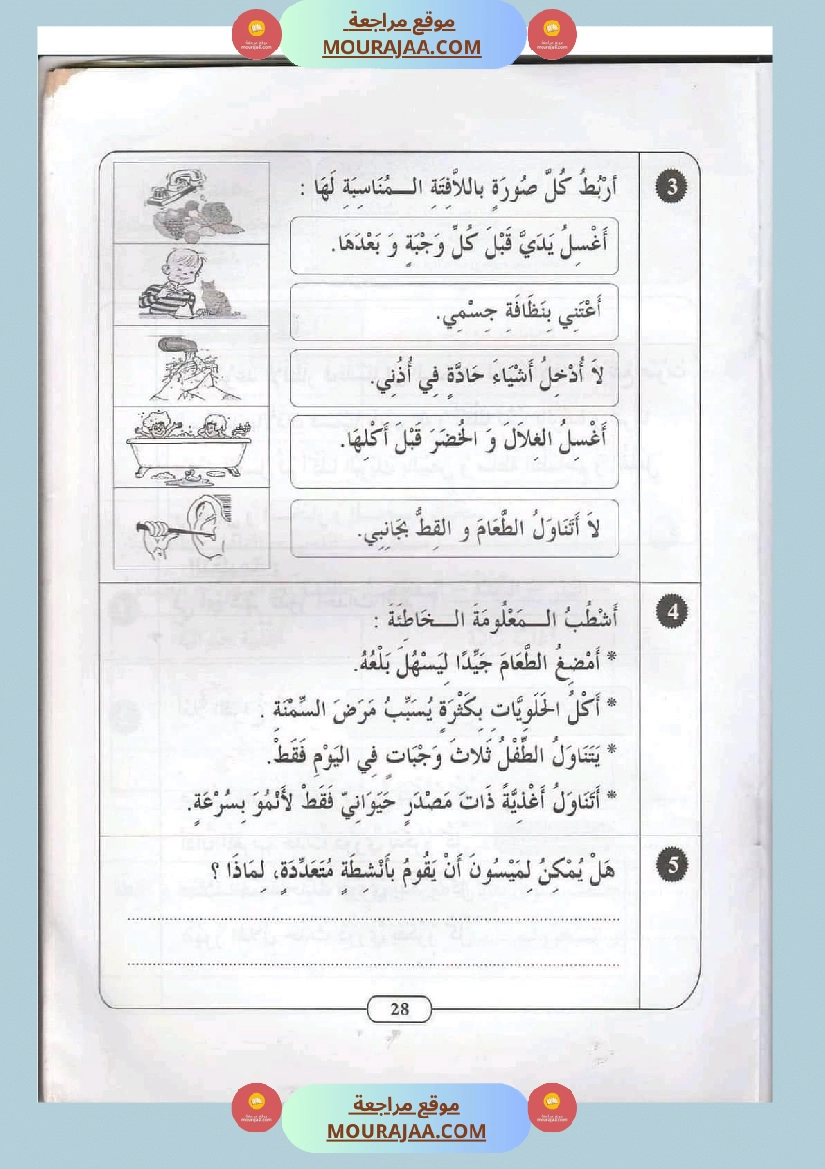 موقع مراجعة
MOURAJAA.COM
3
أَرْبُطُ كُلَّ صُورَةٍ بِاللاَّفِتَةِ الـــمُنَاسِبَةِ لَهَا :
أَغْسِلُ يَدَيَّ قَبْلَ كُلِّ وَجْبَةٍ وَ بَعْدَهَا.
أَعْتَنِي بِنَظَافَةِ جِسْمِي.
لاَ أُدْخِلُ أَشْيَاءَ حَادَّةٍ فِي أُذُنِي.
أَغْسِلُ الغِلاَلَ وَ الخُضَرَ قَبْلَ أَكْلِهَا.
لاَ أَتَنَاوَلُ الطَّعَامَ وَ القِطُّ بِجَانِبِي.
4
أَشْطُبُ الـــمَعْلُومَةَ الـــخَاطِئَةَ :
* أَمْضِغُ الطَّعَامَ جَيِّدًا لِيَسْهُلَ بَلْعُهُ.
* أَكْلُ الحَلَوِيَّاتِ بِكَثْرَةٍ يُسَبِّبُ مَرَضَ السِّمْنَةِ .
* يَتَنَاوَلُ الطِّفْلُ ثَلاثَ وَجْبَاتٍ فِي اليَوْمِ فَقَطْ.
* أَتَنَاوَلُ أَغْذِيَّةً ذَاتَ مَصْدَرٍ حَيَوَانِيّ فَقَطْ لأَنْمُوَ بِسُرْعَةٍ.
5
هَلْ يُمْكِنُ لِمَيْسُونَ أَنْ يَقُومُ بِأَنْشِطَةٍ مُتَعَدِّدَةٍ، لِمَاذَا ؟
28
موقع مراجعة
MOURAJAA.COM